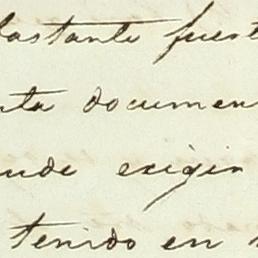 bastante fuert
nta documen
ude exigir
tenido en